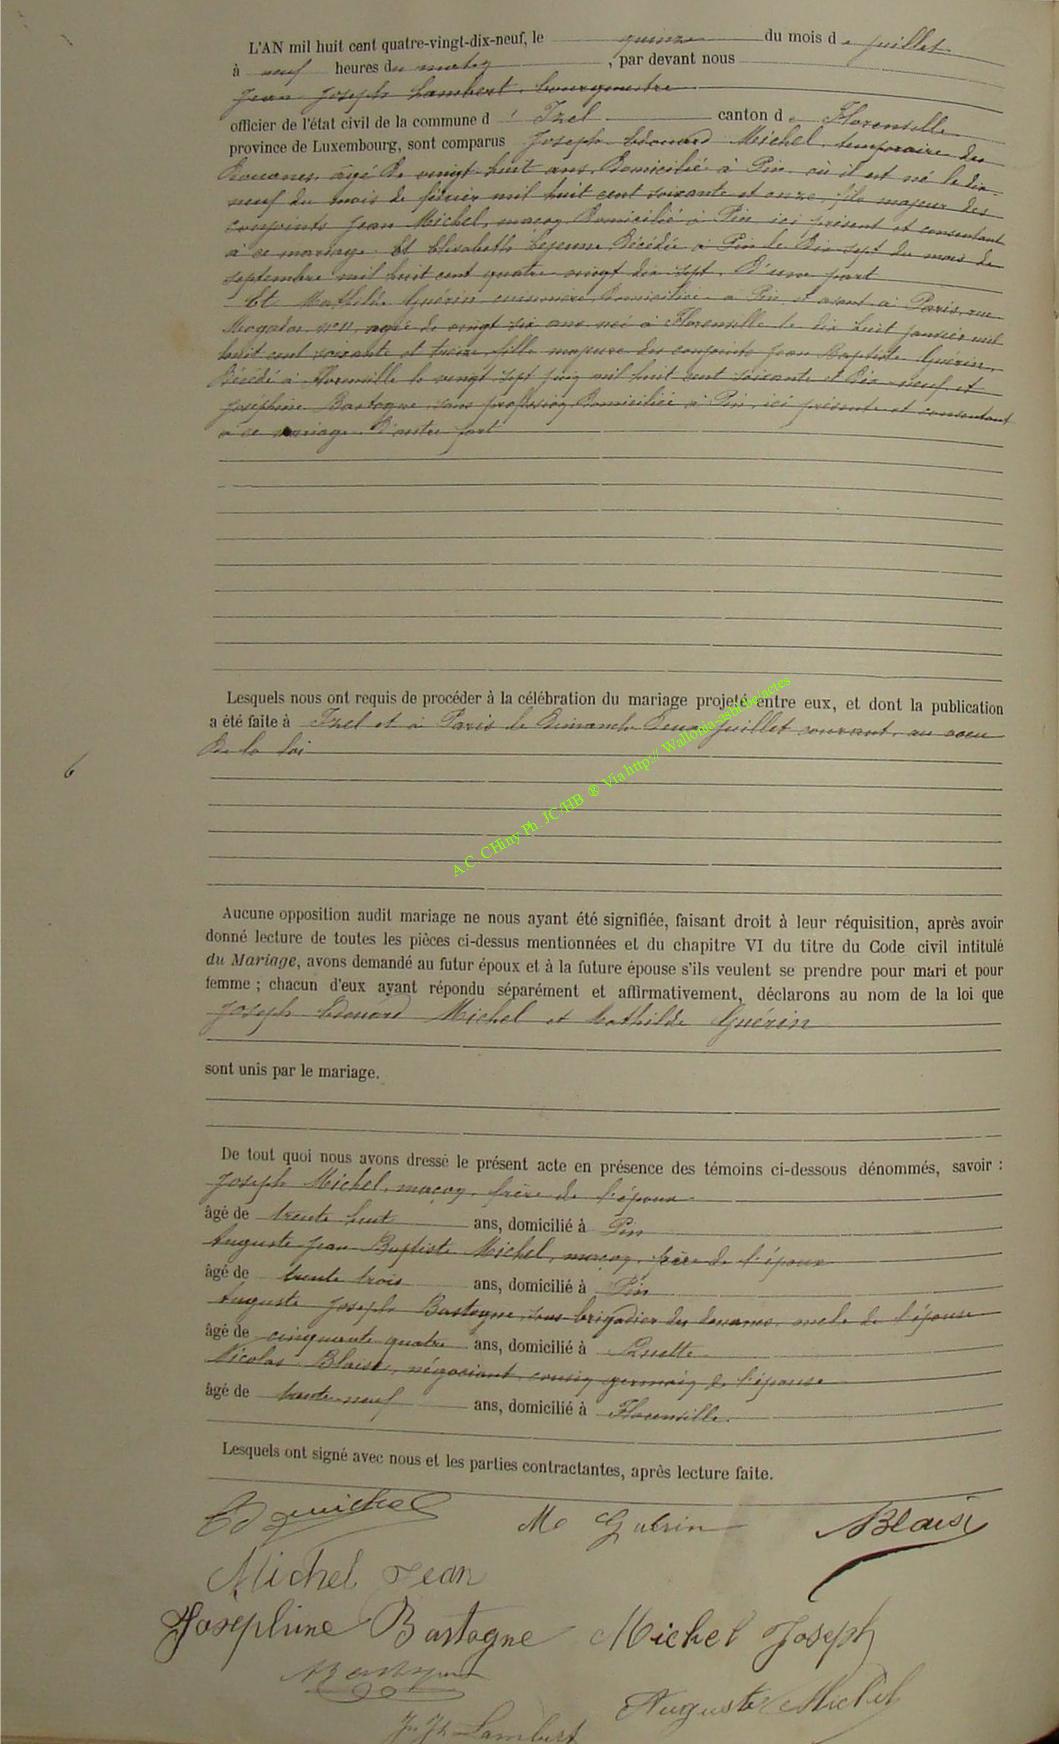 L'AN mil huit cent quatre-vingt-dix-neuf, le quinze du mois de juillet
à neuf heures du matin, par devant nous
Jean Joseph Lambert, bourgmestre
officier de l'état civil de la commune d'Izel canton de Florenville
province de Luxembourg, sont comparus Joseph Edouard Michel, temporaire des
douanes, âgé de vingt-huit ans, domicilié à Pin où il est né le dix
neuf du mois de février mil huit cent soixante et onze, fils majeur des
conjoints Jean Michel, maçon, domicilié à Pin, ici présent et consentant
à ce mariage. Et Elisabeth Lejeune décédée à Pin le dix sept du mois de
septembre mil huit cent quatre vingt dix sept. D'une part
Et Mathilde Guérin, cuisinière, domiciliée à Pin et avant à Paris, rue
Mogador n° 11, agée de vingt six ans née à Florenville le dix huit janvier mil
huit cent soixante et treize, fille majeure des conjoints Jean Baptiste Guérin,
décédé à Florenville le vingt sept juin mil huit cent soixante et dix-neuf et
Joséphine Bastogne, sans profession, domiciliée à Pin, ici présente et consentant
à ce mariage. D'autre part
Lesquels nous ont requis de procéder à la célébration du mariage projeté entre eux, et dont la publication
a été faite à Izel et à Paris le dimanche deux juillet courant, au voeu
de la loi
6
A.C. CHiny Ph. JC/HB ® Via http:// Wallonia-asbl.be/actes
Aucune opposition audit mariage ne nous ayant été signifiée, faisant droit à leur réquisition, après avoir
donné lecture de toutes les pièces ci-dessus mentionnées et du chapitre VI du titre du Code civil intitulé
du Mariage, avons demandé au futur époux et à la future épouse s'ils veulent se prendre pour mari et pour
femme ; chacun d'eux ayant répondu séparément et affirmativement, déclarons au nom de la loi que
Joseph Edouard Michel et Mathilde Guérin
sont unis par le mariage.
De tout quoi nous avons dressé le présent acte en présence des témoins ci-dessous dénommés, savoir :
Joseph Michel, maçon, frère de l'époux
âgé de trente huit ans, domicilié à Pin
Auguste Jean Baptiste Michel, maçon, frère de l'époux
âgé de trente trois ans, domicilié à Pin
Auguste Joseph Bastogne, sous brigadier des douanes, oncle de l'épouse
âgé de cinquante quatre ans, domicilié à
Nicolas Blaise, négociant, cousin germain de l'épouse
âgé de trente-neuf ans, domicilié à Florenville.
Lesquels ont signé avec nous et les parties contractantes, après lecture faite.
Ed Michel Me Guérin NBlaise
Michel Jean
Joséphine Bastogne Michel Joseph
Bastogne
Auguste Michel
Jn Jh Lambert